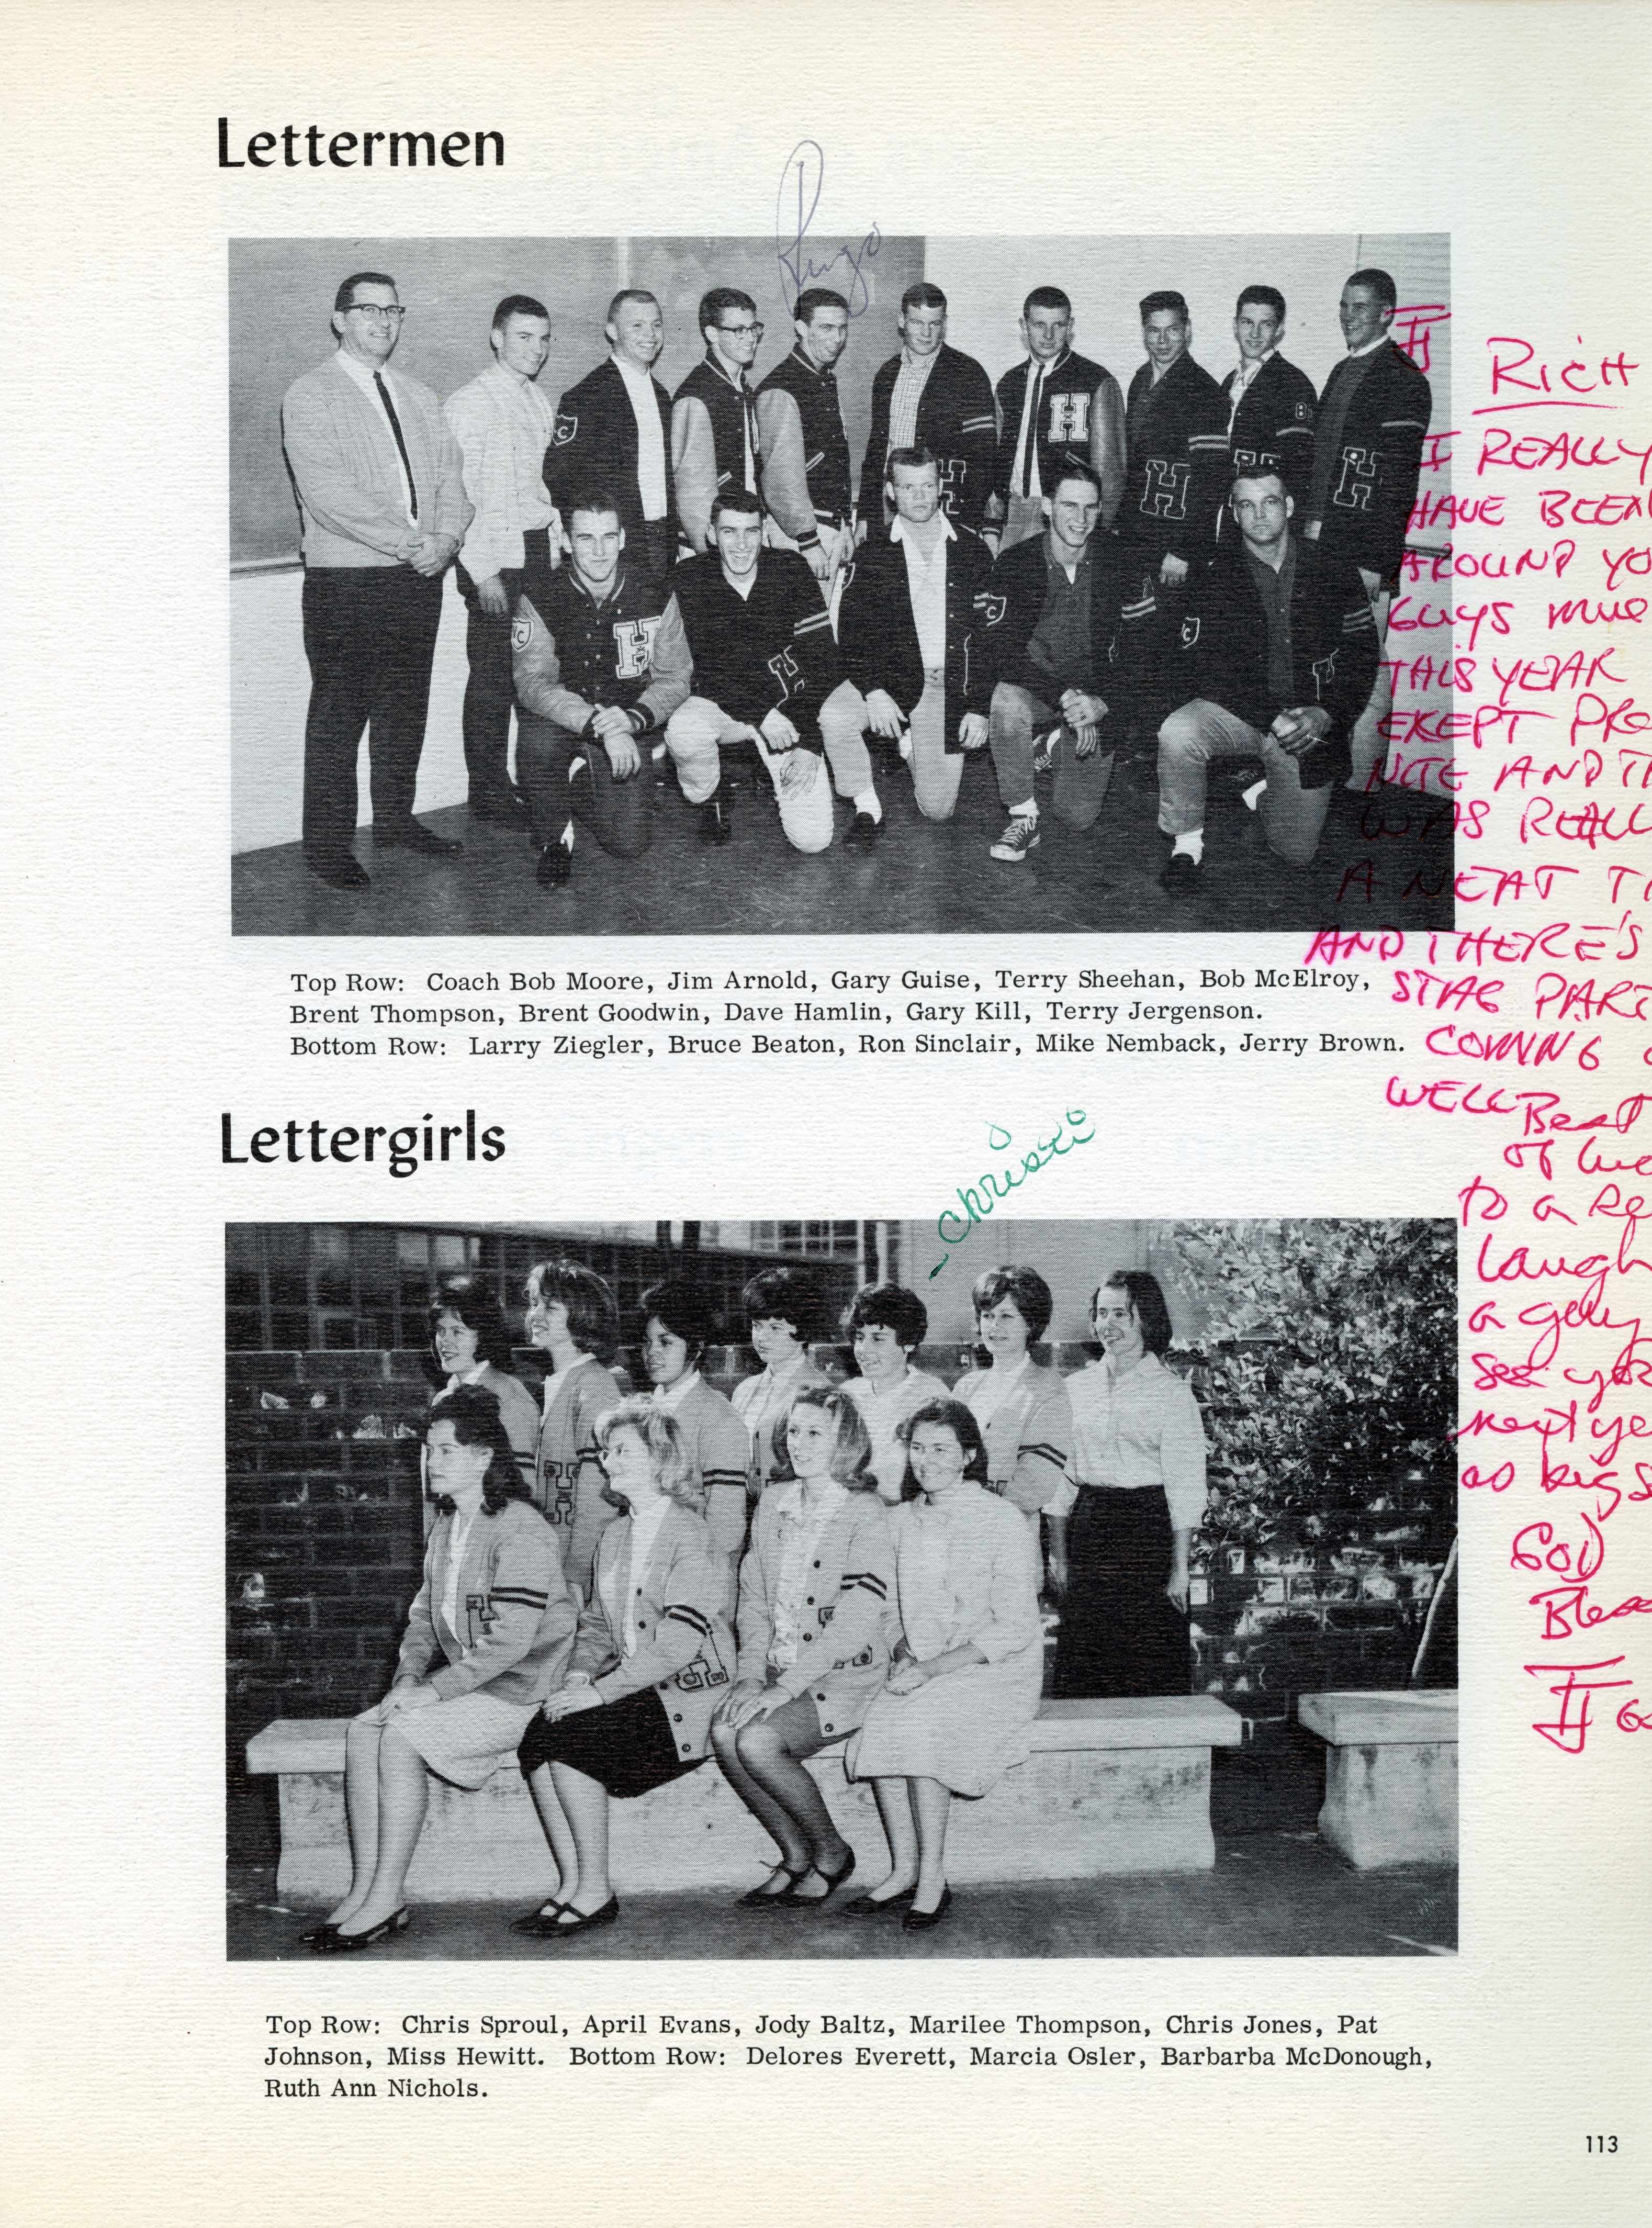 Lettermen
Ringo
Top Row: Coach Bob Moore, Jim Arnold, Gary Guise, Terry Sheehan, Bob McElroy,
Brent Thompson, Brent Goodwin, Dave Hamlin, Gary Kill, Terry Jergenson.
Bottom Row: Larry Ziegler, Bruce Beaton, Ron Sinclair, Mike Nemback, Jerry Brown.
Lettergirls
-Christi
Top Row: Chris Sproul, April Evans, Jody Baltz, Marilee Thompson, Chris Jones, Pat
Johnson, Miss Hewitt. Bottom Row: Delores Everett, Marcia Osler, Barbarba McDonough,
Ruth Ann Nichols.
RICH
I REALLY
HAVE BEEN
AROUND YO
GUYS MUC
THIS YEAR
EXEPT PRO
NITE AND TH
WAS REALL
A NEAT TI
AND THERE'S
STAG PART
COMING
WELL Best
of luc
to a Re
Laugh
a guy
See you
next ye
as big s
GOD
Bless
113